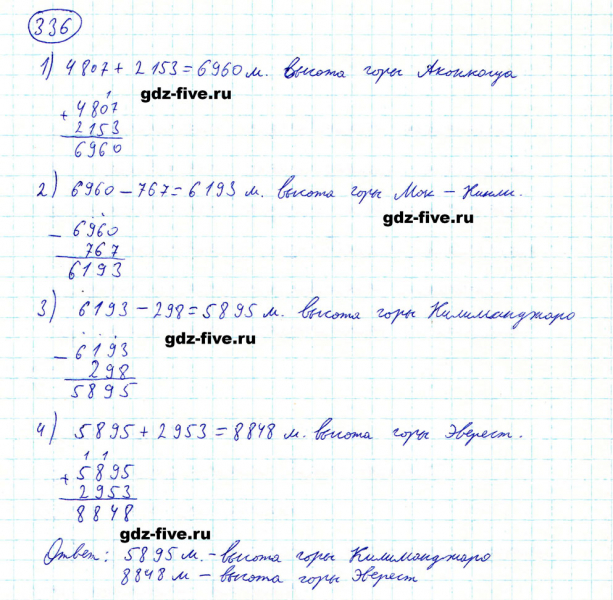 336
1) 4807 + 2153 = 6960 м. высота горы Аконкагуа
gdz-five.ru
1
+ 4807
2153
6960
2) 6960 – 767 = 6193 м. высота горы Мак – Кинли.
gdz-five.ru
– 6960
767
6193
3) 6193 – 298 = 5895 м. высота горы Килиманджаро
gdz-five.ru
– 6193
298
5895
4) 5895 + 2953 = 8848 м. высота горы Эверест.
1 1
+ 5895
2953
8848
gdz-five.ru
Ответ: 5895 м. – высота горы Килиманджаро
8848 м – высота горы Эверест